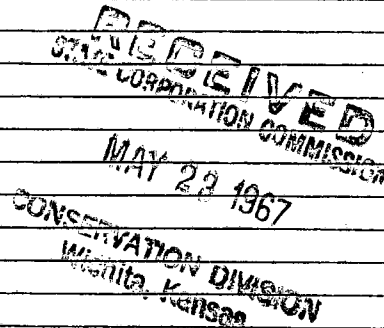 RECEIVED
STATE CORPORATION COMMISSION
MAY 23 1967
CONSERVATION DIVISION
Wichita, Kansas